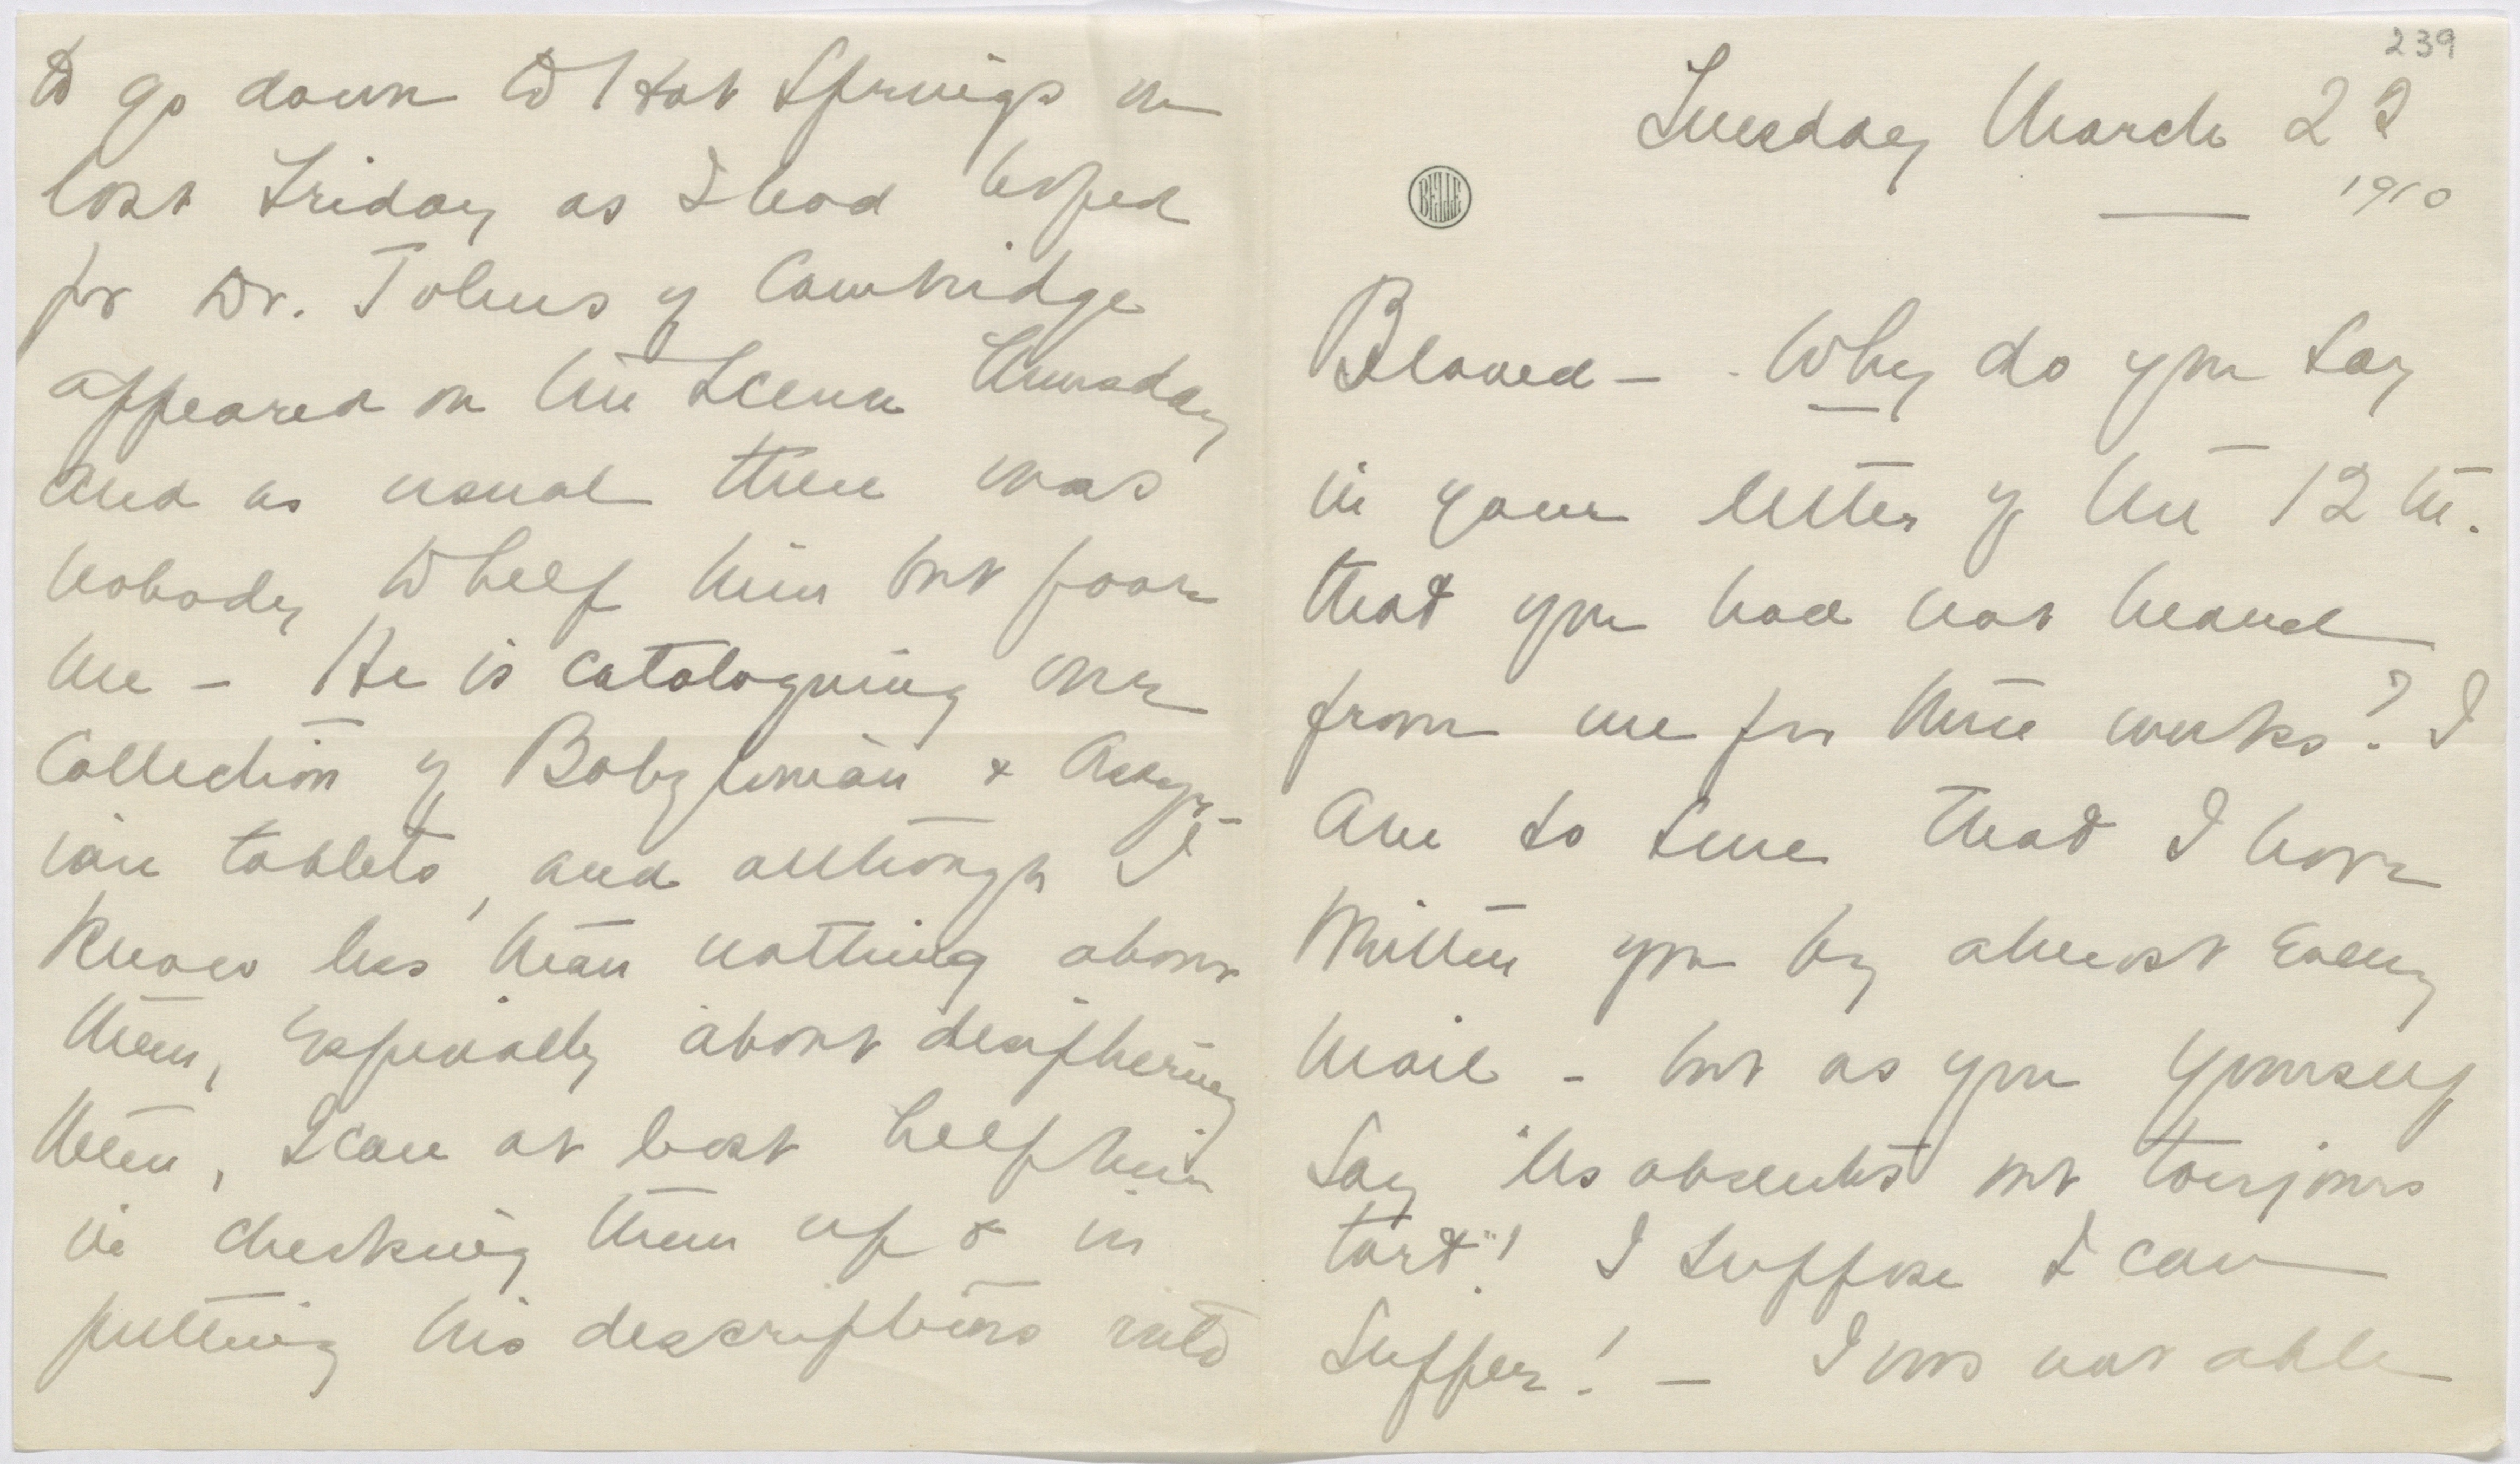 239
Tuesday March 22
1910
BELLE
Beloved - Why do you say
in your letter of the 12th.
that you had not heard
from me for three weeks? I
am so sure that I have
written you by almost every
mail - but as you yourself
say "les absents ont toujours
tort"! I suppose I can
suffer! - I was not able
to go down to Hot Springs on
last Friday as I had hoped
for Dr. Johns of Cambridge
appeared on the scene Thursday
and as usual there was
nobody to help him but poor
me - He is cataloguing our
Collection of Babylonian & Assyr-
ian tablets, and although I
know less than nothing about
them, especially about deciphering
them, I can at least help him
in checking them up & in
putting his descriptions into